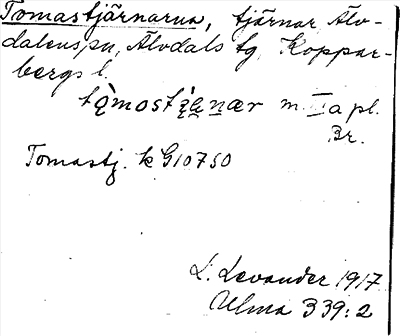 Tomastjärnarna, tjärnar Älv-
dalens sn, Älvdals tg, Koppar-
bergs l.
tòmostję̀nær m. IIa pl.
Br.
Tomastj. k G10750
L. Levander 1917
Ulma 339:2